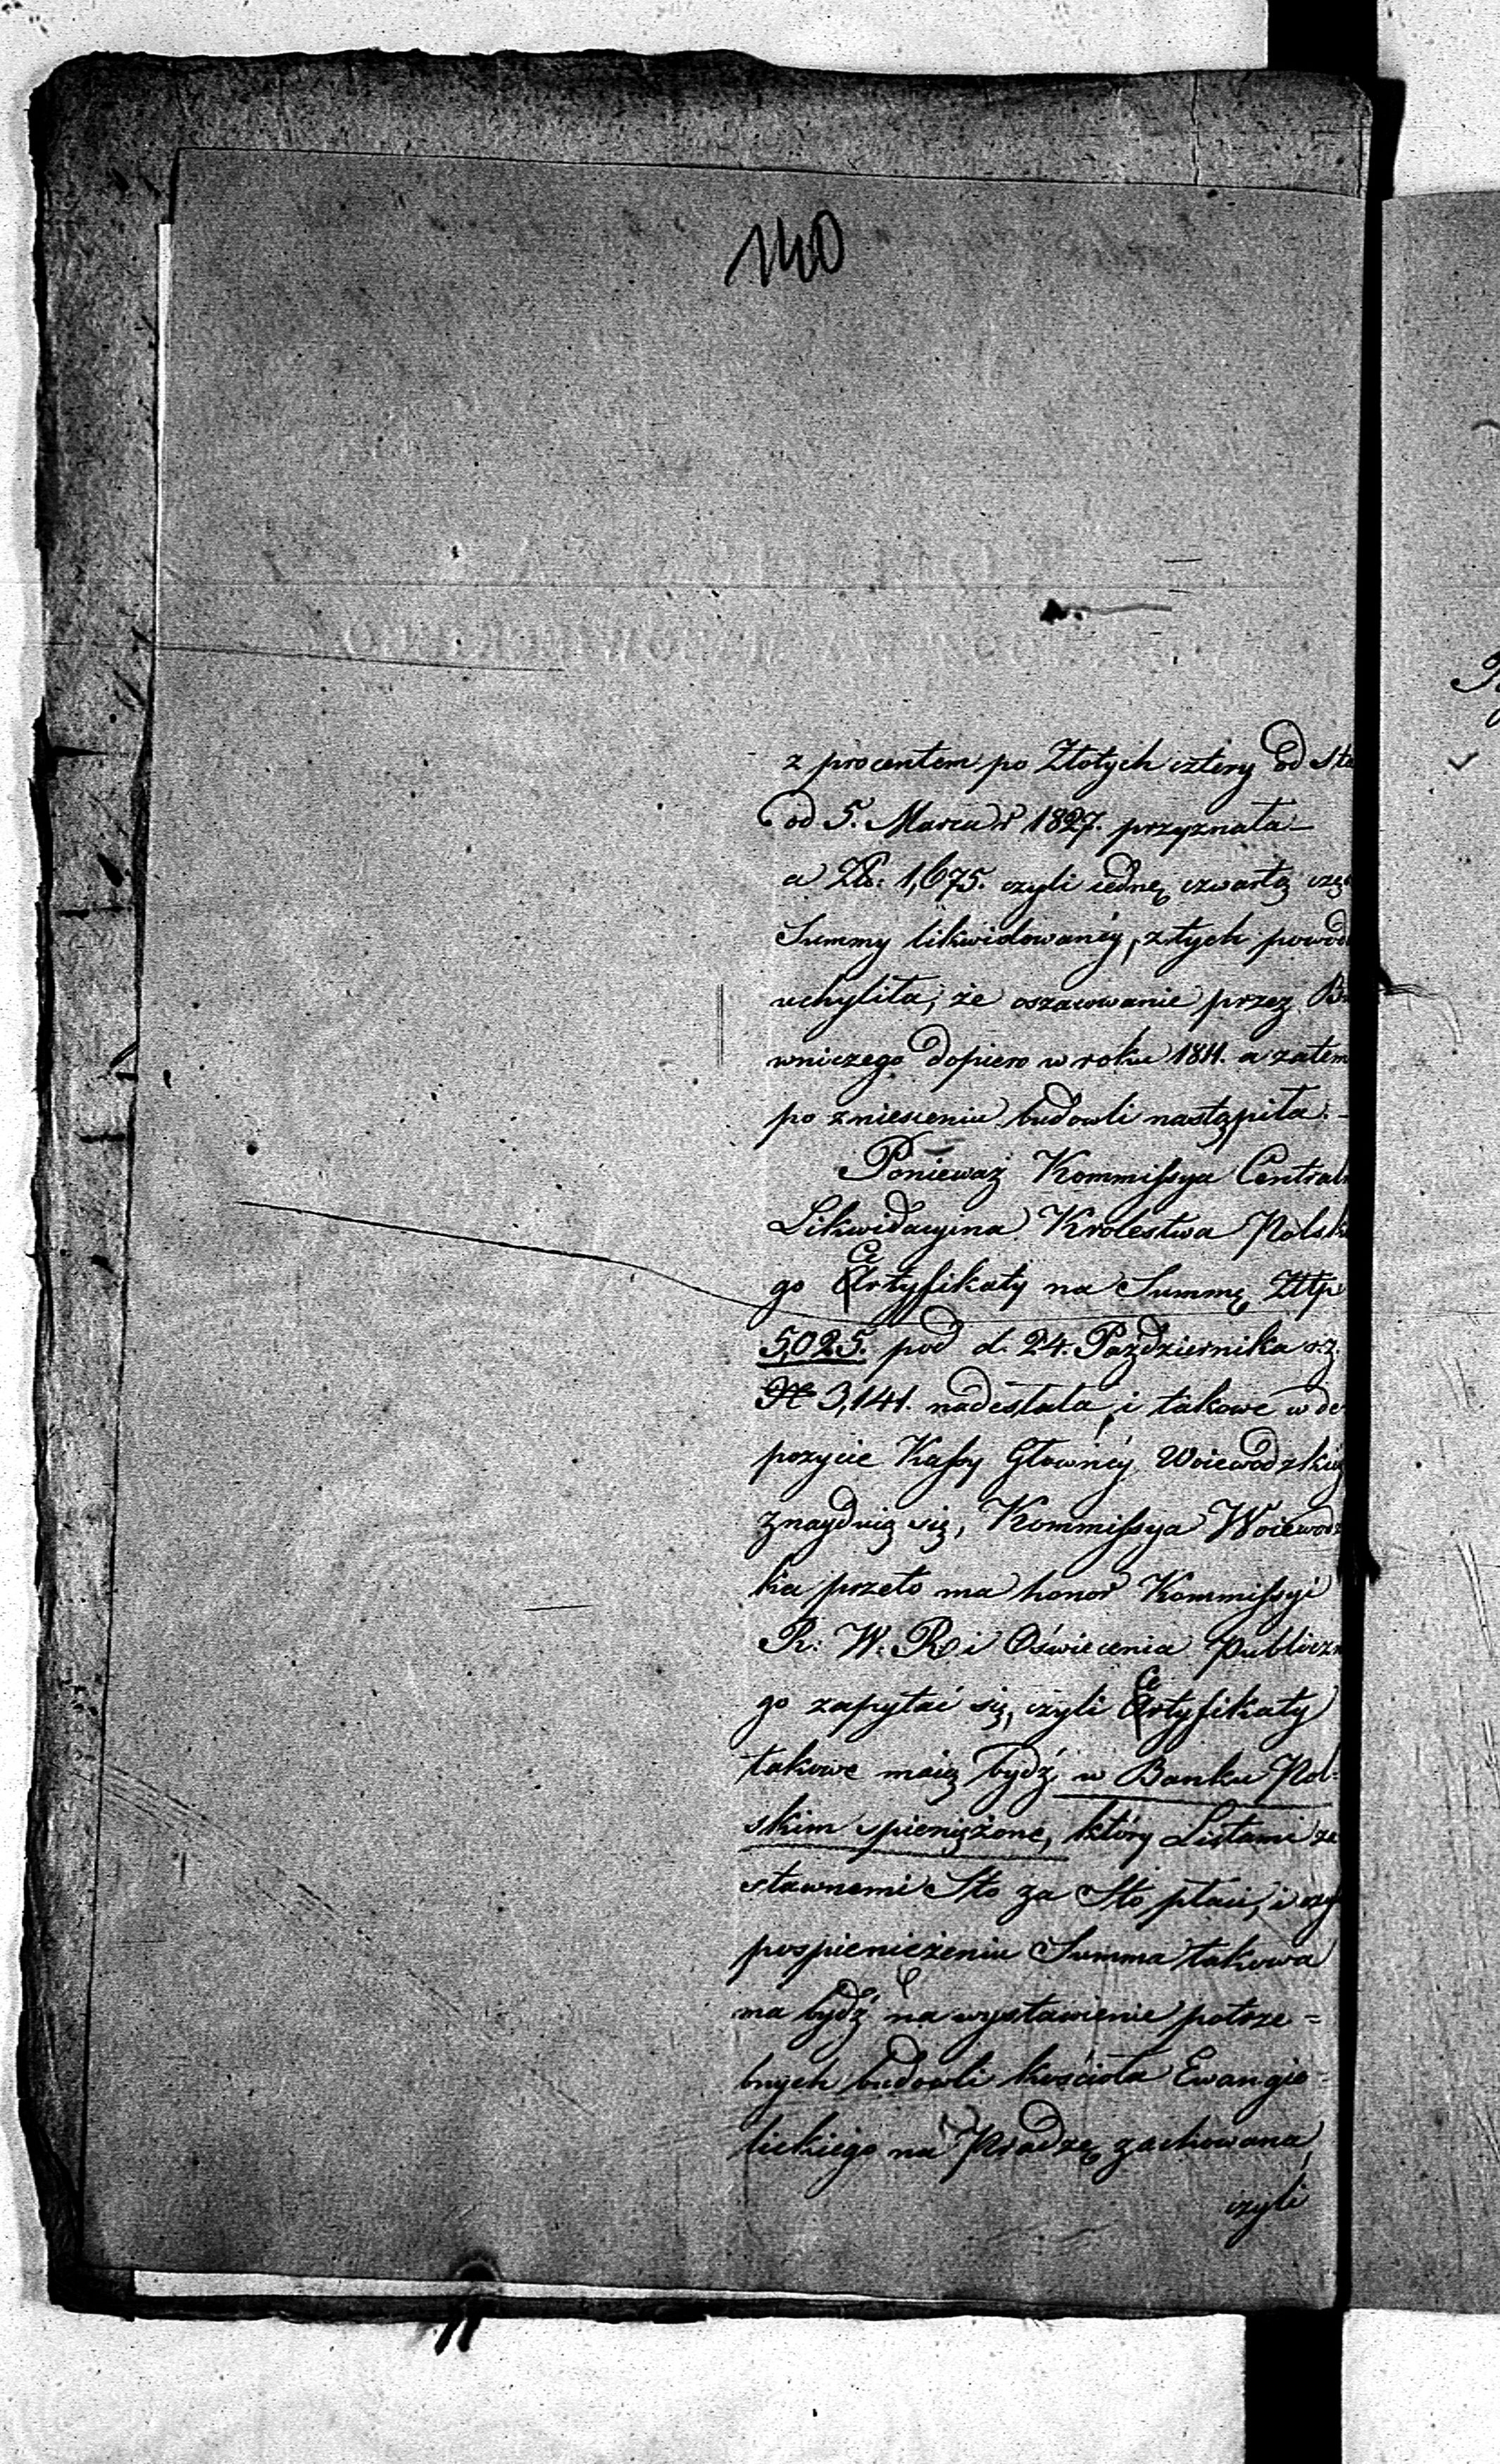 140
z procentem po Złotych cztery od sta
od 5. Marca r 1827. przyznała —
a Zł: 1,675. czyli iednę czwartą czę
Summy likwidowanéy, z tych powod
uchyliła, że oszacowanie przez Bu
wniczego dopiero w roku 1811. a zatem
po zniesieniu budowli nastąpiła. —
Ponieważ Kommissya Central
Likwidacyina Krolestwa Polsk
go Certyfikaty na Summę Złtp
5,025. pod d. 24. Października r. z.
N 3,141. nadesłała, i takowe w de
pozycie Kassy Głównéy Woiewodzkiéy
znayduią się, Kommissya Woiewodz
ka przeto ma honor Kommissyi
R: W: R. i Oświecenia Publiczn
go zapytać się, czyli Certyfikaty
takowe maią bydź w Banku Pol-
skim spieniężone, który Listami za
stawnemi Sto za Sto płaci, i czy
po spieniężeniu Summa takowa
ma bydź na wystawienie potrze =
bnych budowli kościoła Ewangie -
lickiego na Pradze zachowana,
czyli